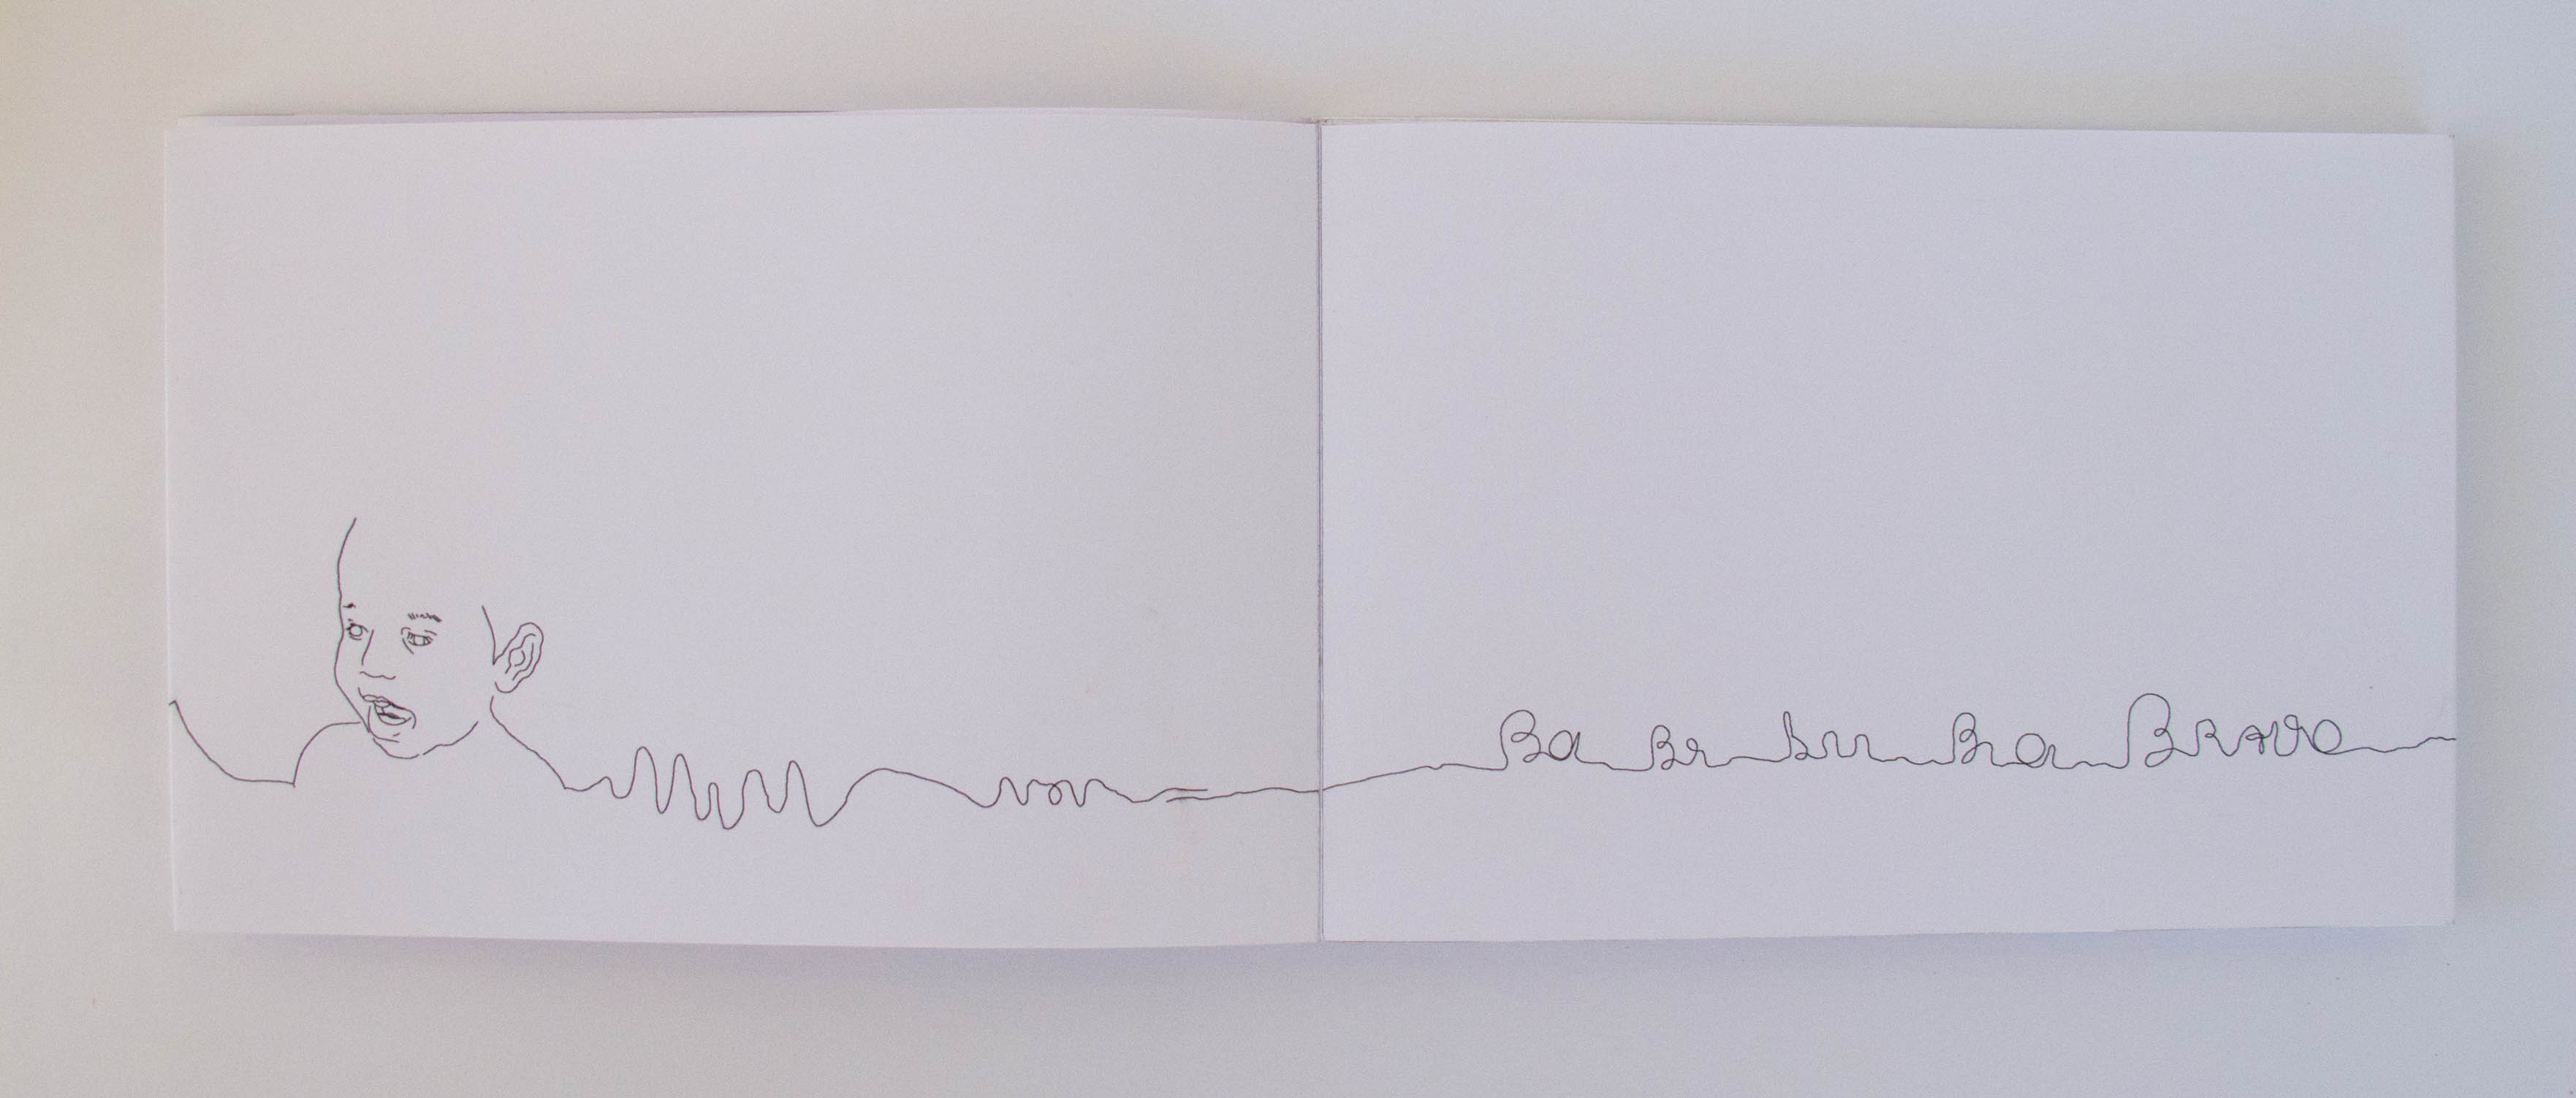 Ba Br bu Bra Bravo